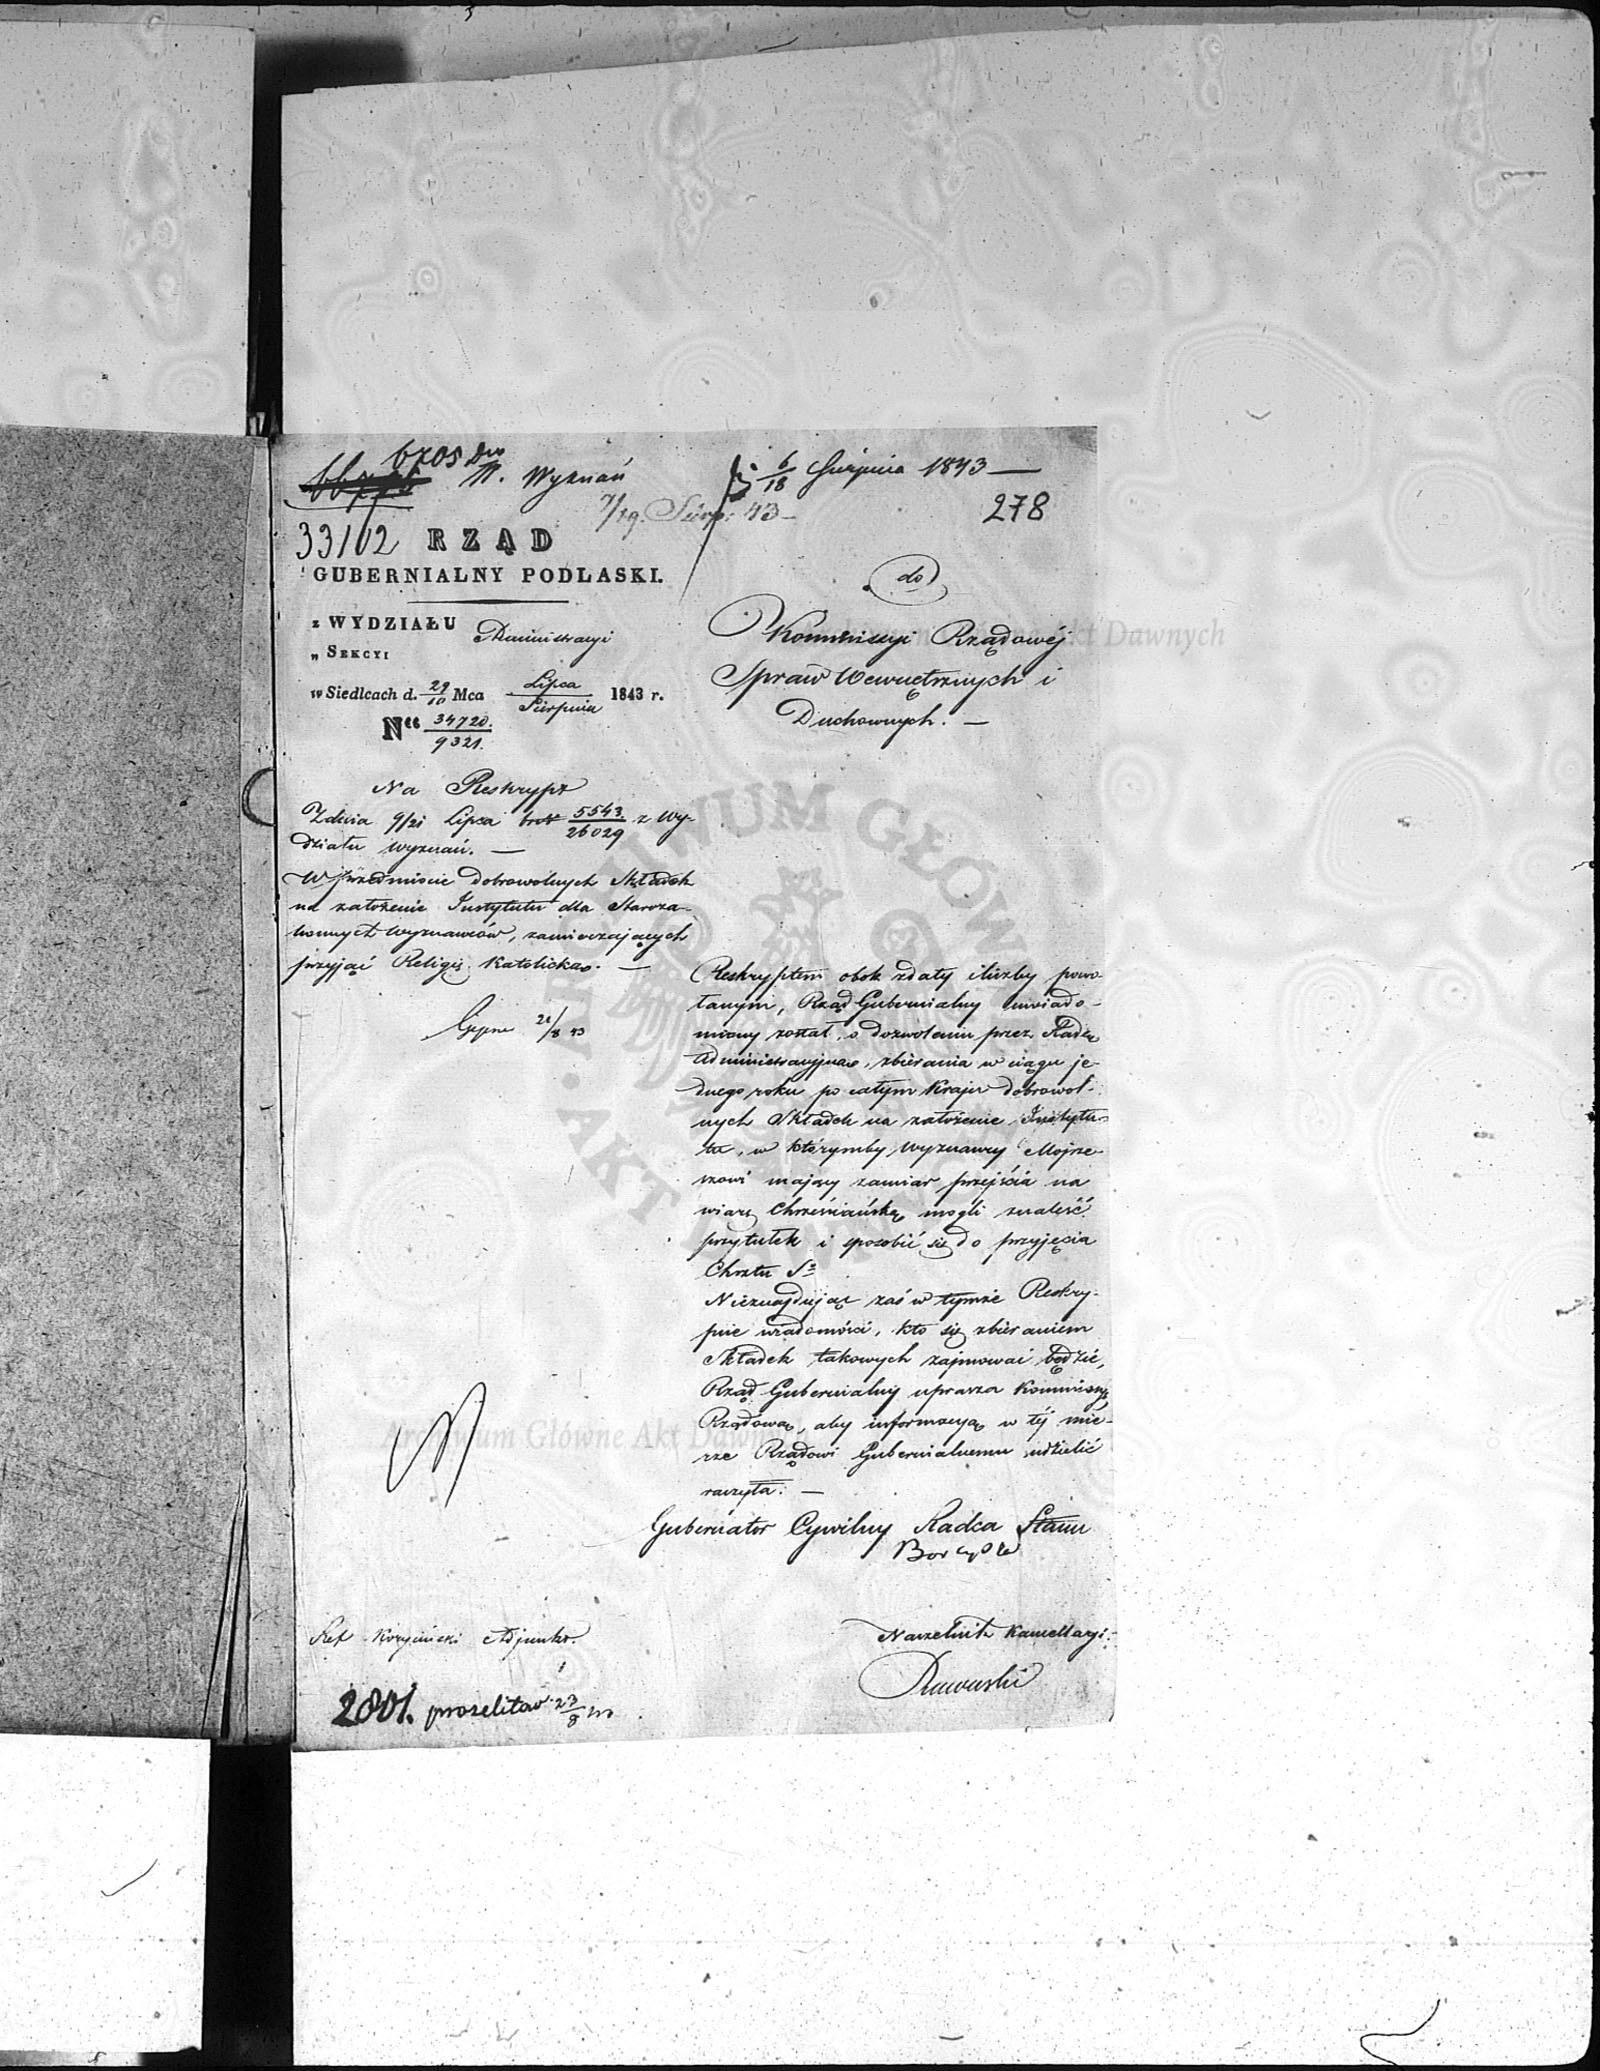 6705 Dw
W. Wyznań
6/18 Sierpnia 1843 —
7/19. Sierp: 43 —
278
33102
RZĄD
GUBERNIALNY PODLASKI.
z WYDZIAŁU Administracyi
„ SEKCYI
w Siedlcach d. 29/10 Mca Lipca/Sierpnia 1843 r.
Nro 34720./9321.
do
Kommissyi Rządowéj
Spraw Wewnętrznych i
Duchownych. —
Na Reskrypt
Z dnia 9/21 Lipca br 5543/26029 z Wy-
działu Wyznań. —
W przedmiocie dobrowolnych Składek
na założenie Instytutu dla Staroza-
konnych Wyznawców, zamierzających
przyjąć Religię Katolicką. —
21/8 43
Reskryptem obok z daty i liczby powo-
łanym, Rząd Gubernialny uwiado-
miony został, o dozwoleniu przez Radę
Administracyjną, zbierania w ciągu je-
dnego roku po całym Kraju dobrowol-
nych Składek na założenie Instytu-
tu, w którymby Wyznawcy Mojże-
szowi mający zamiar przejścia na
wiarę Chrześciańską mogli znaleść
przytułek i sposobić się do przyjęcia
Chrztu Sgo
Nieznajdując zaś w tymże Reskry-
pcie wiadomości, kto się zbieraniem
Składek takowych zajmować będzie,
Rząd Gubernialny uprasza Kommissyę
Rządową, aby informacyą w téj mie-
rze Rządowi Gubernialnemu udzielić
raczyła. —
Gubernator Cywilny Radca Stanu
Naczelnik Kancellaryi:
Ref Adjunkt.
2801. prozelitów 23/8
Archiwum Główne Akt Dawnych
ARCHIWUM GŁÓWNE AKT DAWNYCH